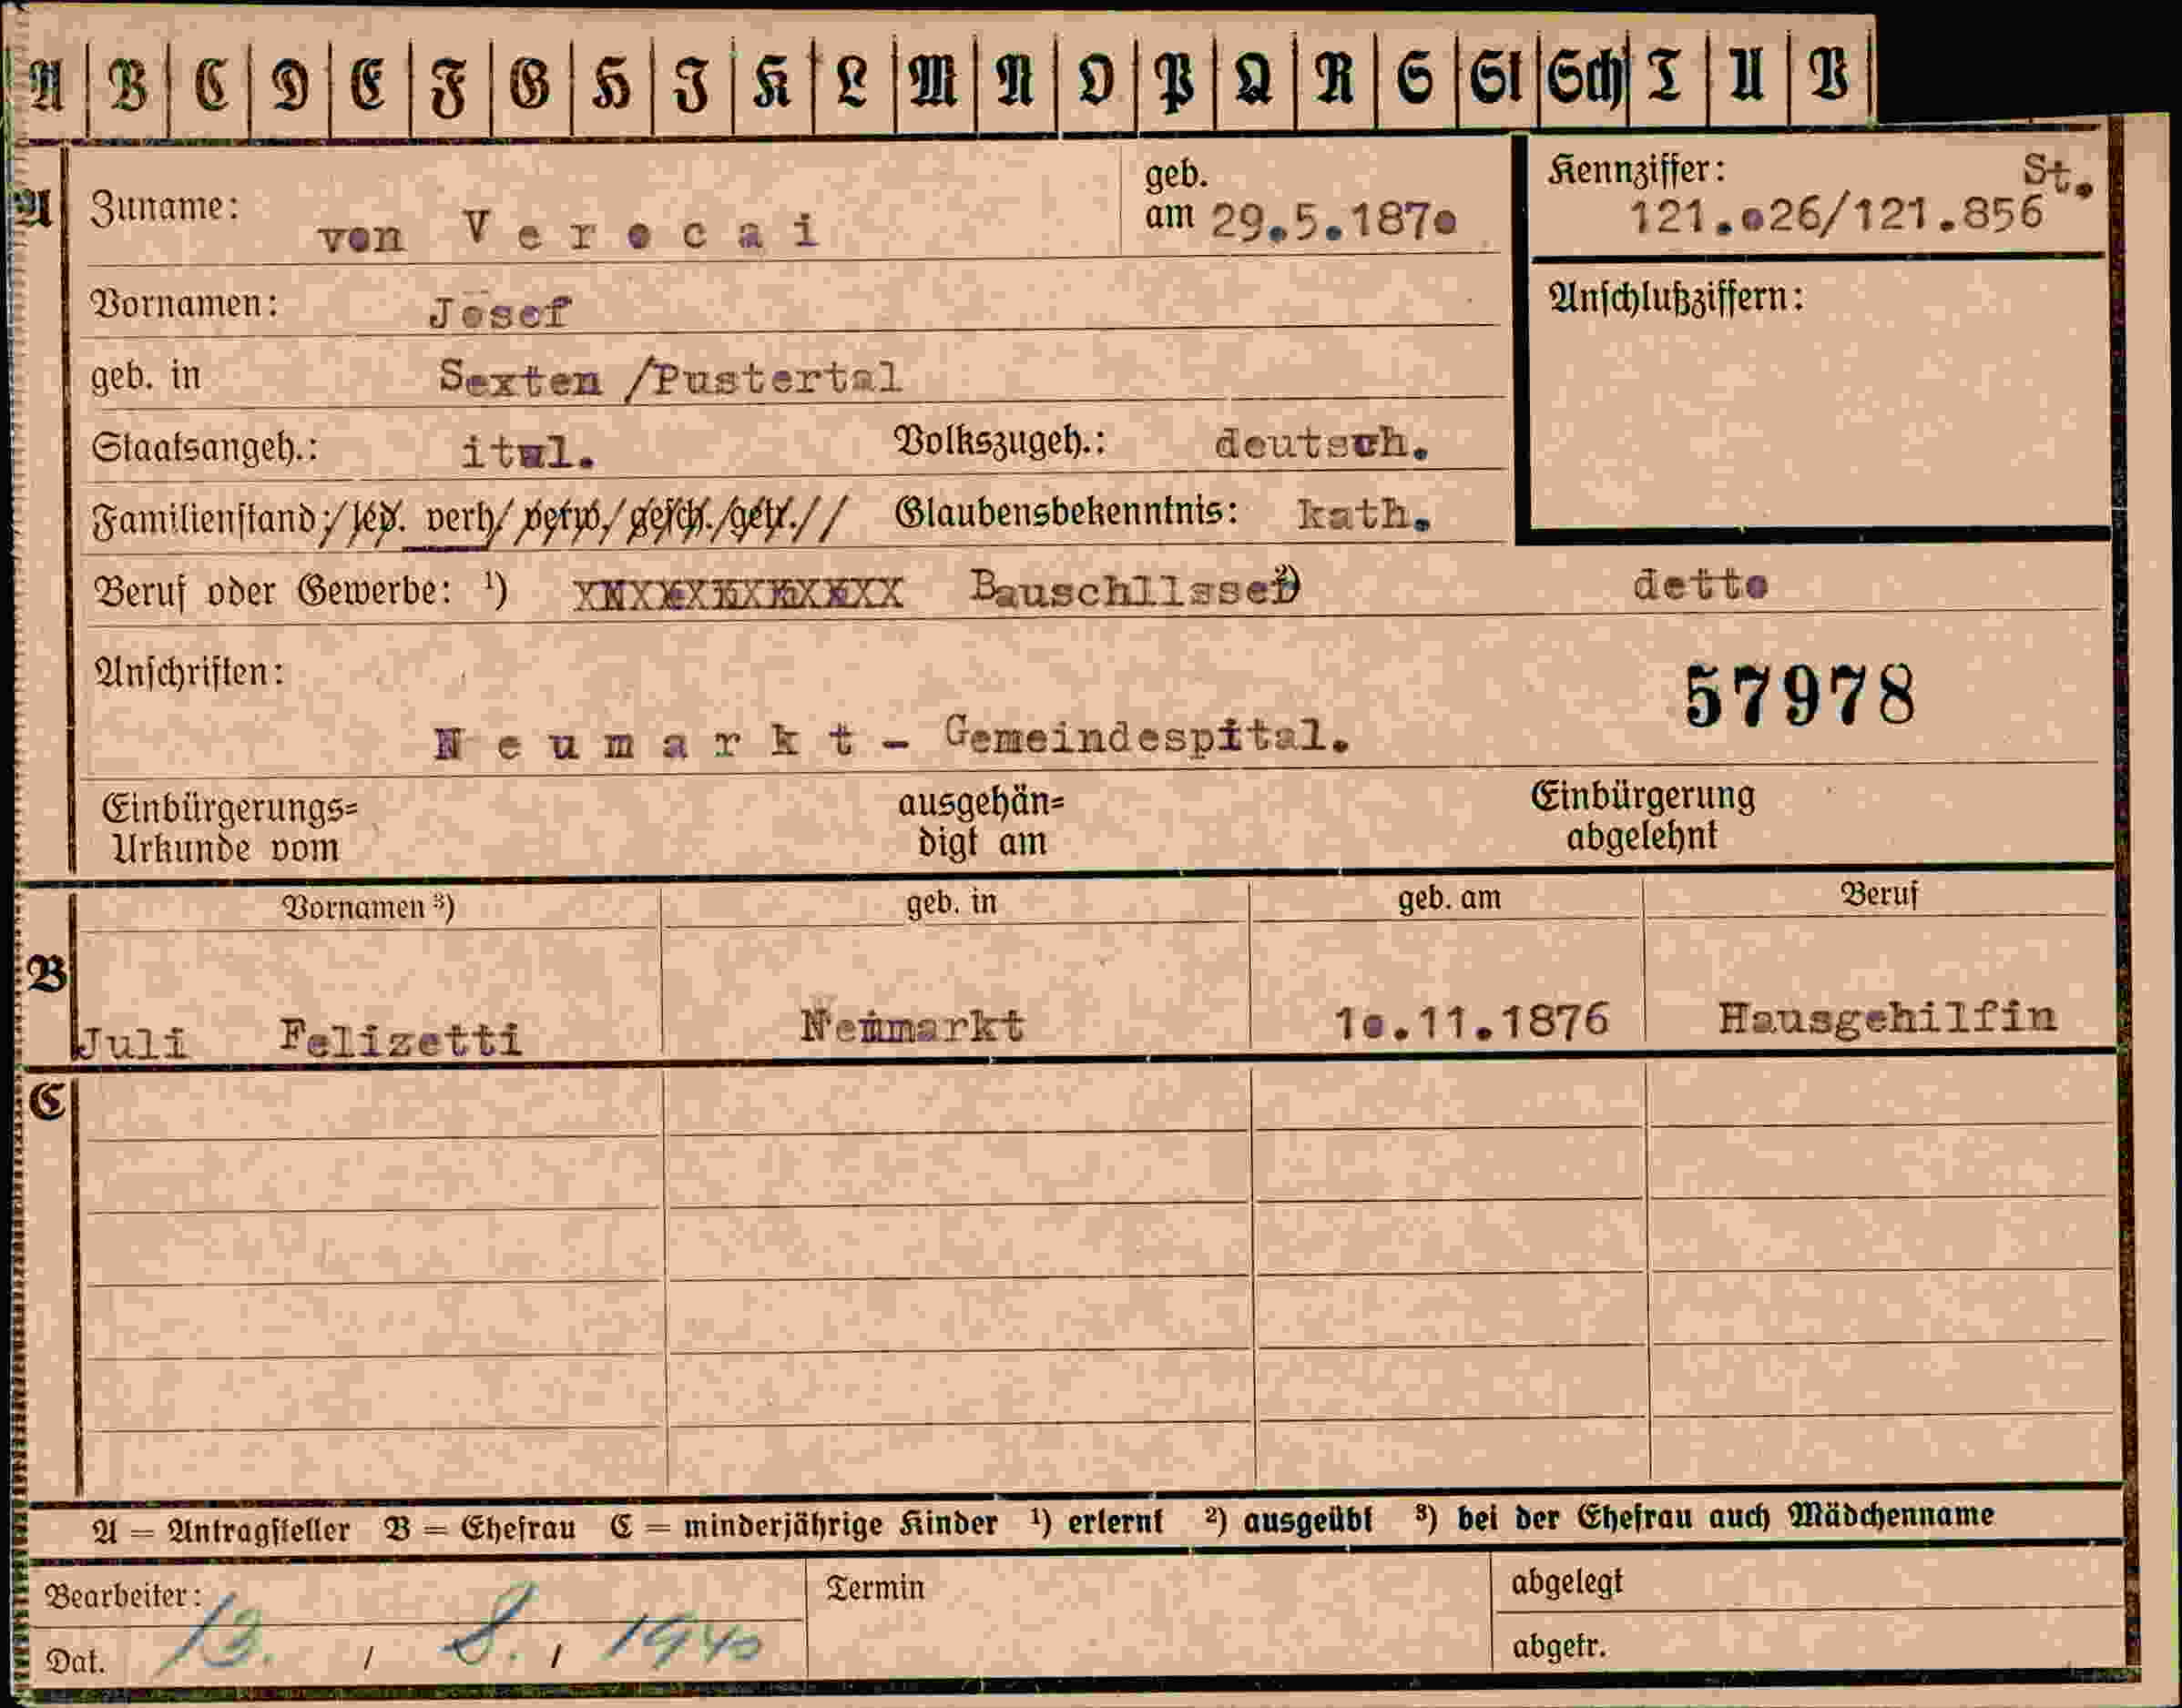 A B C D E F G H J K L M N O P Q R S St Sch T U V
A Zuname: von V e r o c a i geb. am 29.5.1870 Kennziffer: St. 121.026/121.856
Vornamen: Josef Anschlußziffern:
geb. in Sexten /Pustertal
Staatsangeh.: ital. Volkszugeh.: deutsch.
Familienstand: led. verh verw. gesch. getr. Glaubensbekenntnis: kath.
Beruf oder Gewerbe: ¹) Bauschllsser ²) detto
Anschriften: 57978
N e u m a r k t - Gemeindespital.
Einbürgerungs= ausgehän= Einbürgerung
Urkunde vom digt am abgelehnt
Vornamen ³) geb. in geb. am Beruf
B
Juli Felizetti Neumarkt 10.11.1876 Hausgehilfin
C
A = Antragsteller B = Ehefrau C = minderjährige Kinder ¹) erlernt ²) ausgeübt ³) bei der Ehefrau auch Mädchenname
Bearbeiter: Termin abgelegt
Dat. 13. / 8. / 1940 abgetr.